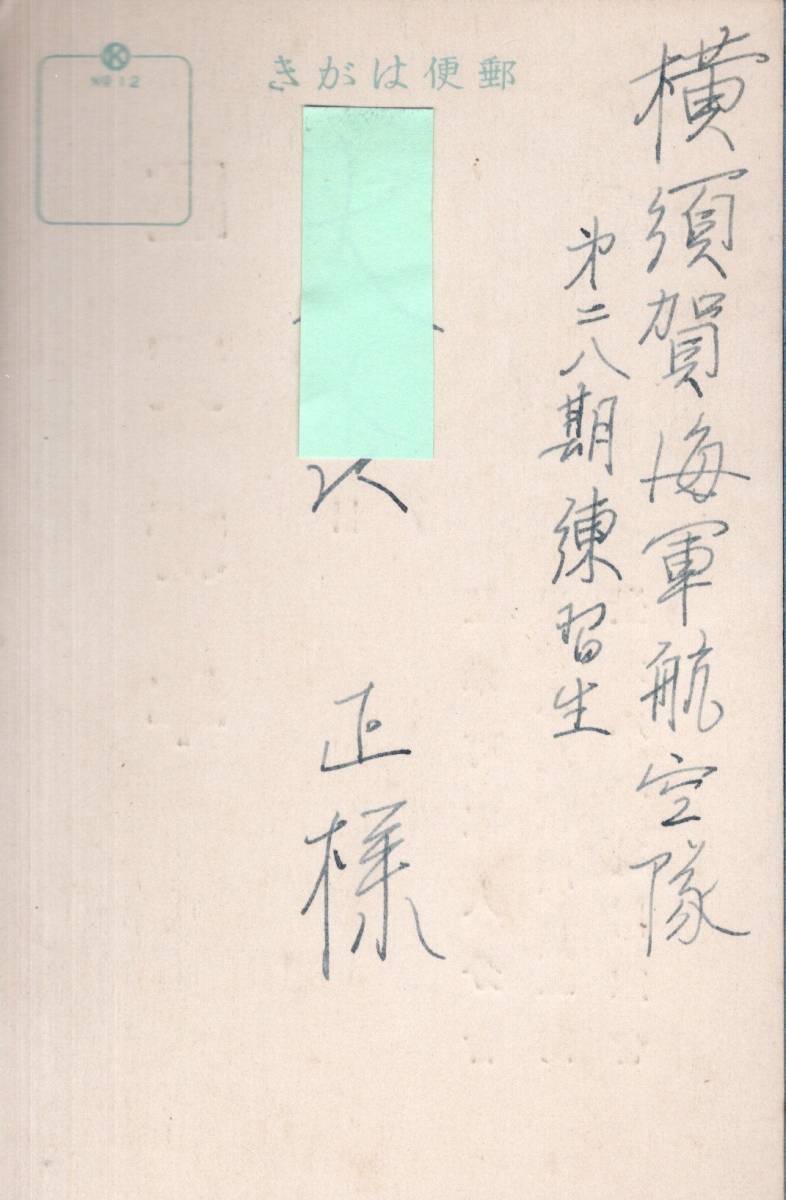 きがは便郵
No 12
横須賀海軍航空隊
第二八期練習生
正様